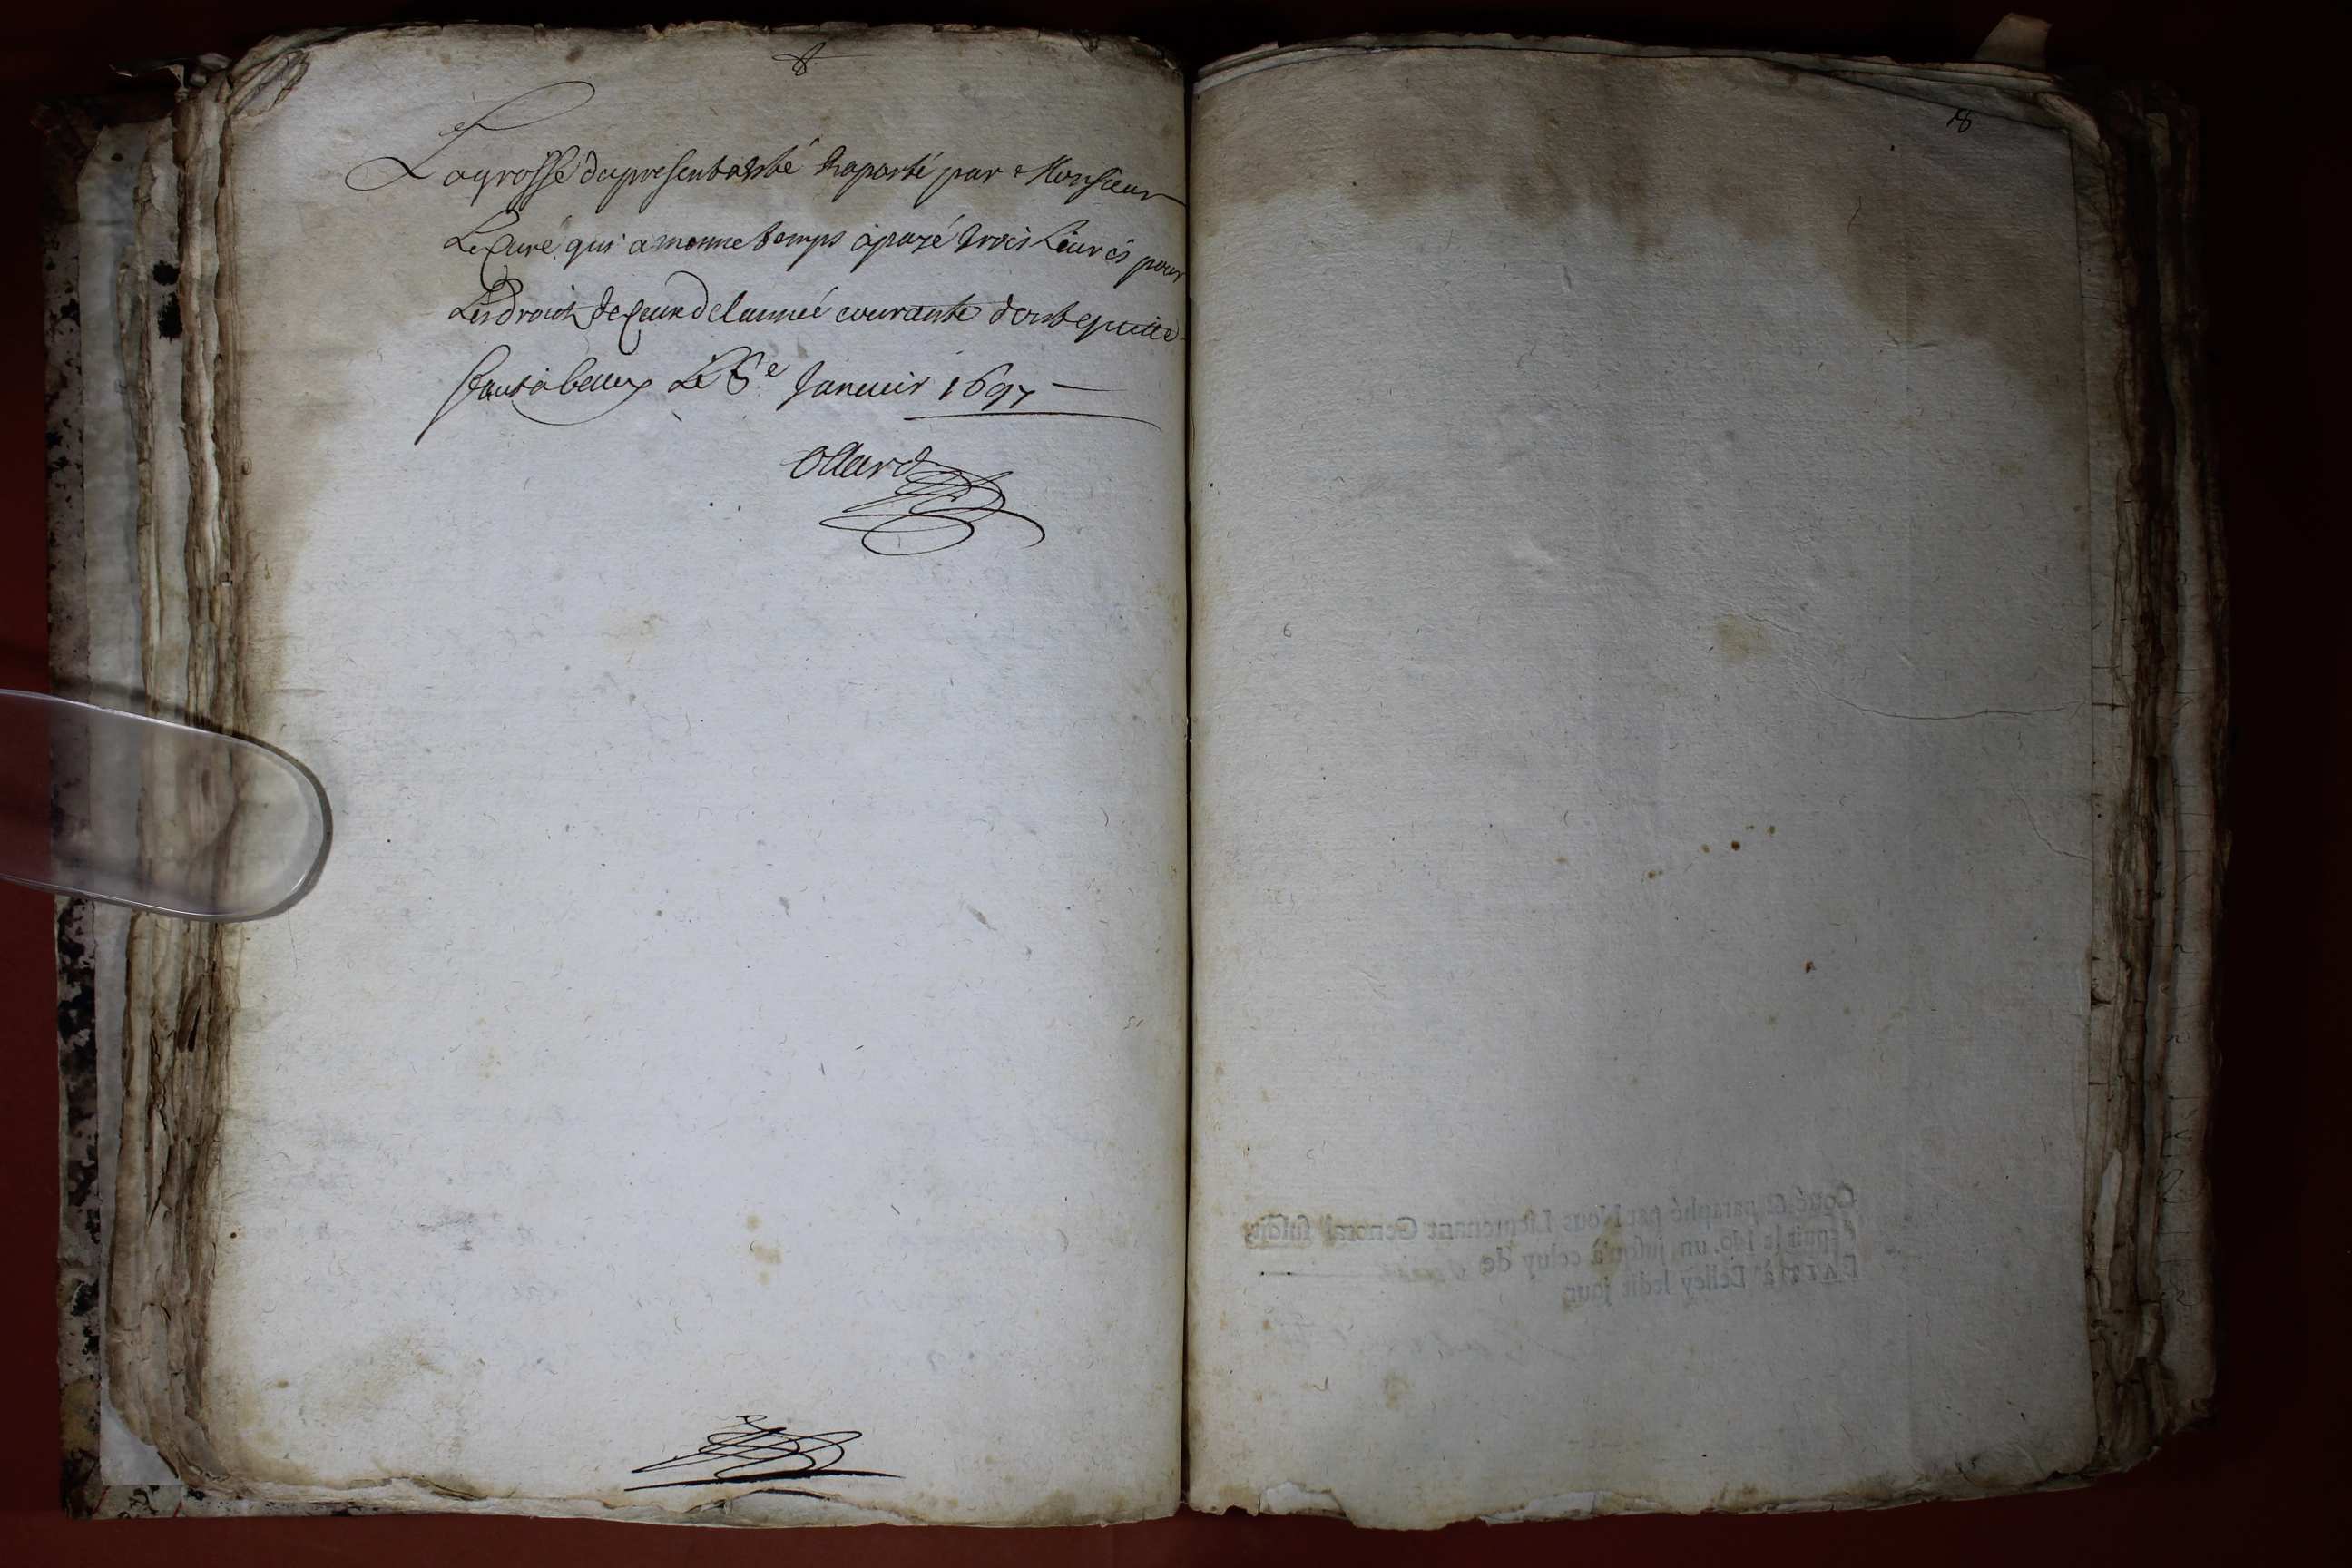 8
La grosse du present a esté raporté par Monsieur
Le Curé qui a mesme temps a payé trois Liures pour
Les droicts de ceux de lannee courante dont quitte
faict a belley Le 8e Januier 1697
Ollard
18
Cotté & paraphé par Nous Lieutenant General susdit
depuis le fol. un jusqu'à celuy de
FAIT à Belley ledit jour